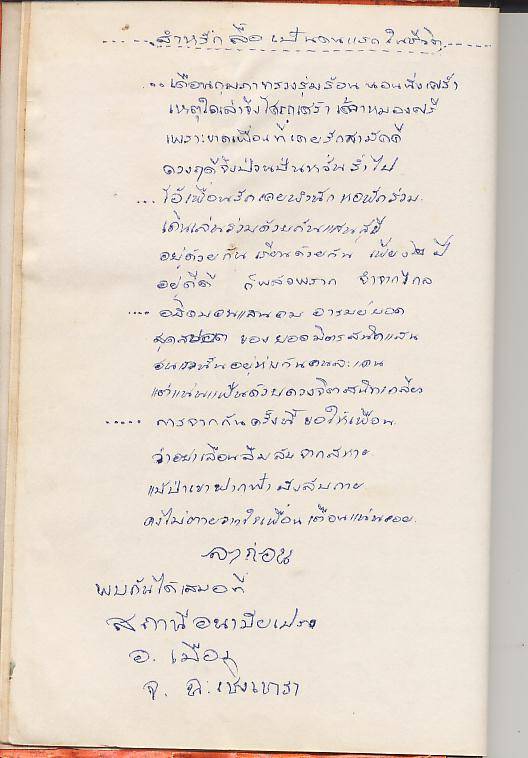 สำหรับ สื่อ เป็นคนแรก ในชีวิต
... เดือนกุมภาทรวงรุ่มร้อน นอนนั่งเศร้า
เหตุใดเล่าจึง เศร้า เศร้าหมองศรี
เพราะขาดเพื่อนที่เคยรักสามัคคี
ดวงฤดีจึงป่วนปั่นหวั่นร่ำไป
... โอ้เพื่อนรักเคยพำนัก หอพักร่วม
เดินเล่นร่วมด้วยกันแสนสุขี
อยู่ด้วยกัน เรียนด้วยกัน เพียง ๒ ปี
อยู่ดีดี ก็พลัดพราก จำจากไกล
.... แสนคม อารมย์ยอด
สุดสยอด ของ ยอดมิตรสนิทแสน
อยู่ห่างกันคนละแดน
แต่แน่นแฟ้นด้วยดวงจิตสนิทเกลียว
..... การจากกันครั้งนี้ ขอให้เพื่อน
ว่าอย่าเลือนลืมลับจากสหาย
แม้ป่าเขาฟากฟ้า
คงไม่ตายจากใจเพื่อน เตือนแน่นอย
ลาก่อน
พบกันได้เสมอที่
สถานีอนามัย
อ. เมือง
จ. ฉะเชิงเทรา